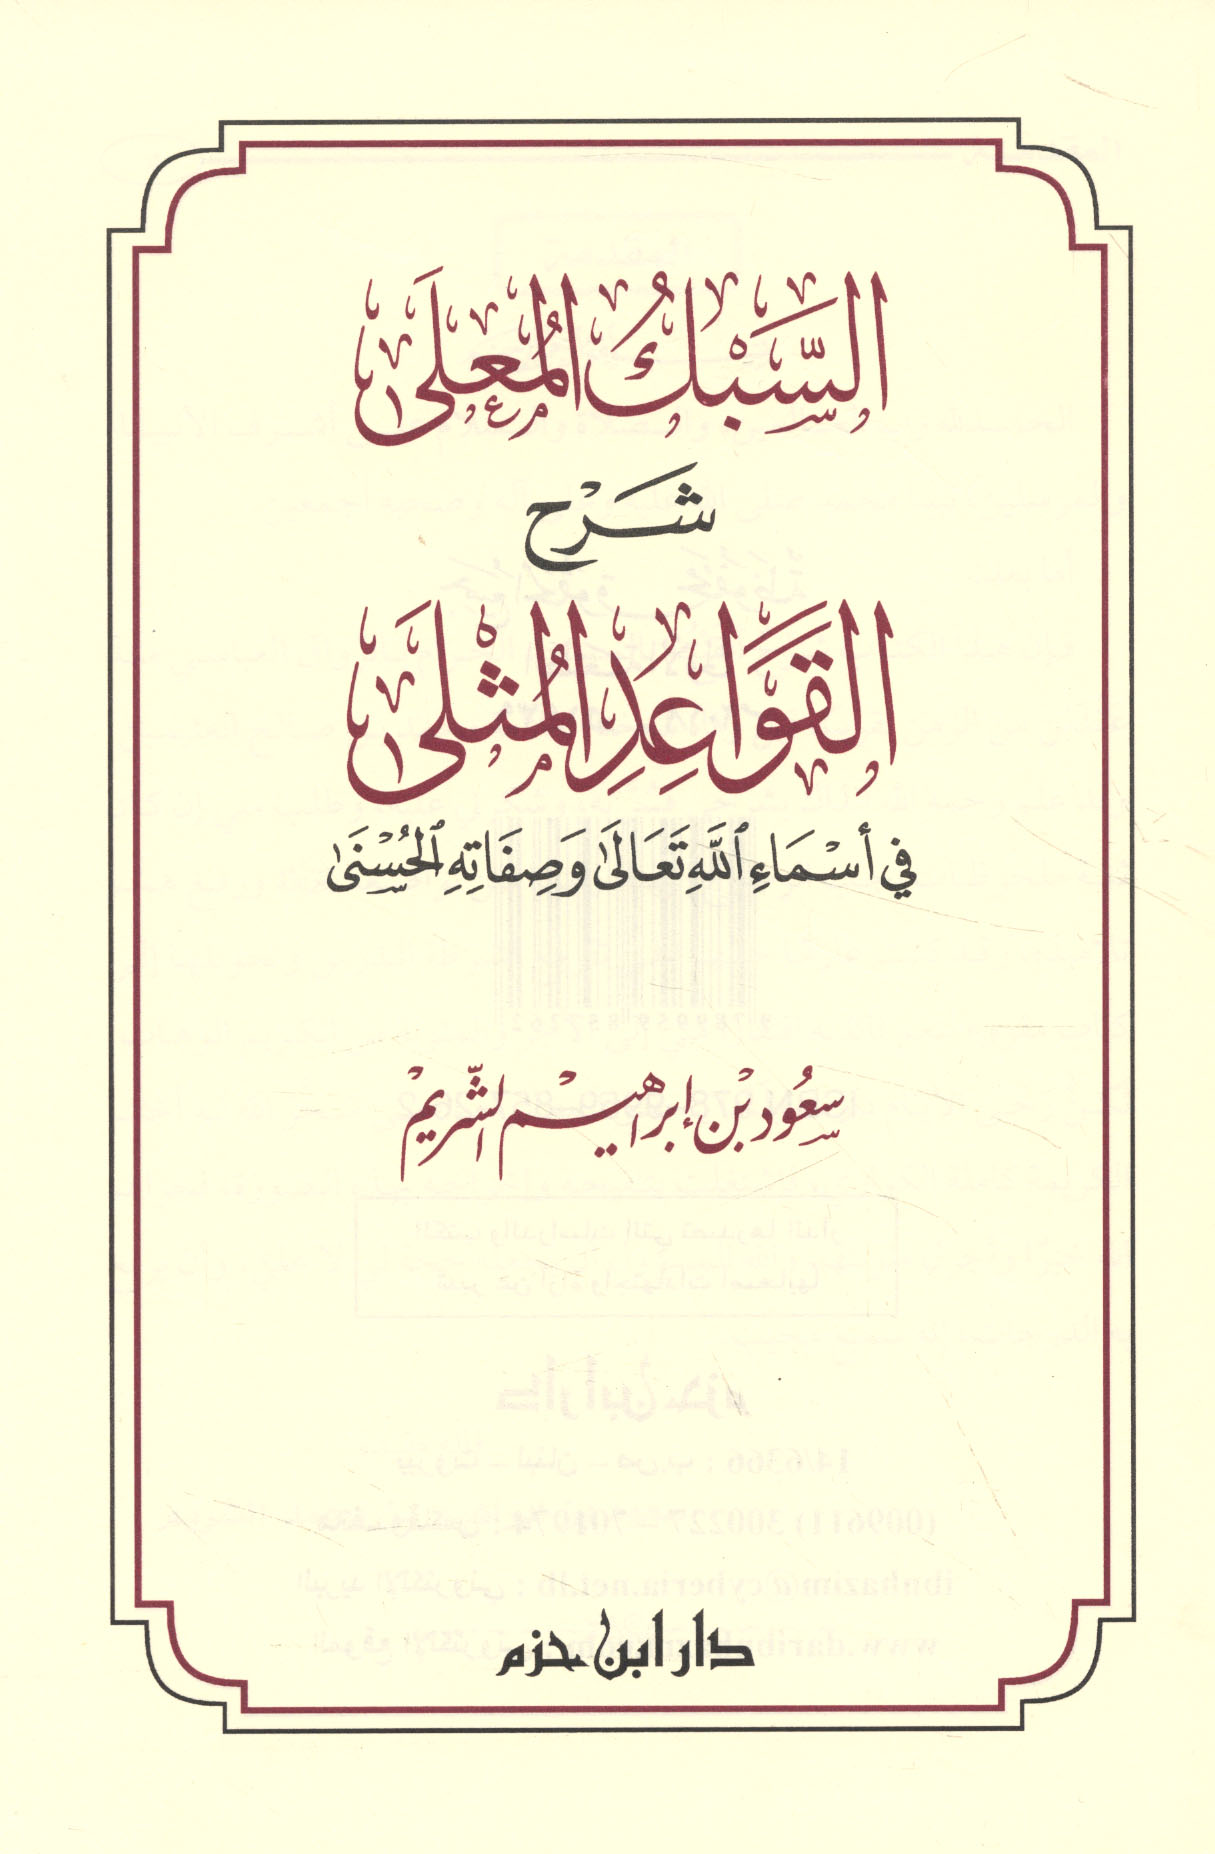 السَّبْكُ المُعلَى
شَرْح
القَوَاعِدِ المُثْلَى
في أَسْمَاءِ ٱللَّهِ تَعَالَىٰ وَصِفَاتِهِ ٱلْحُسْنَىٰ
سعُود بْن إبراهيم الشّريمْ
دار ابن حزم